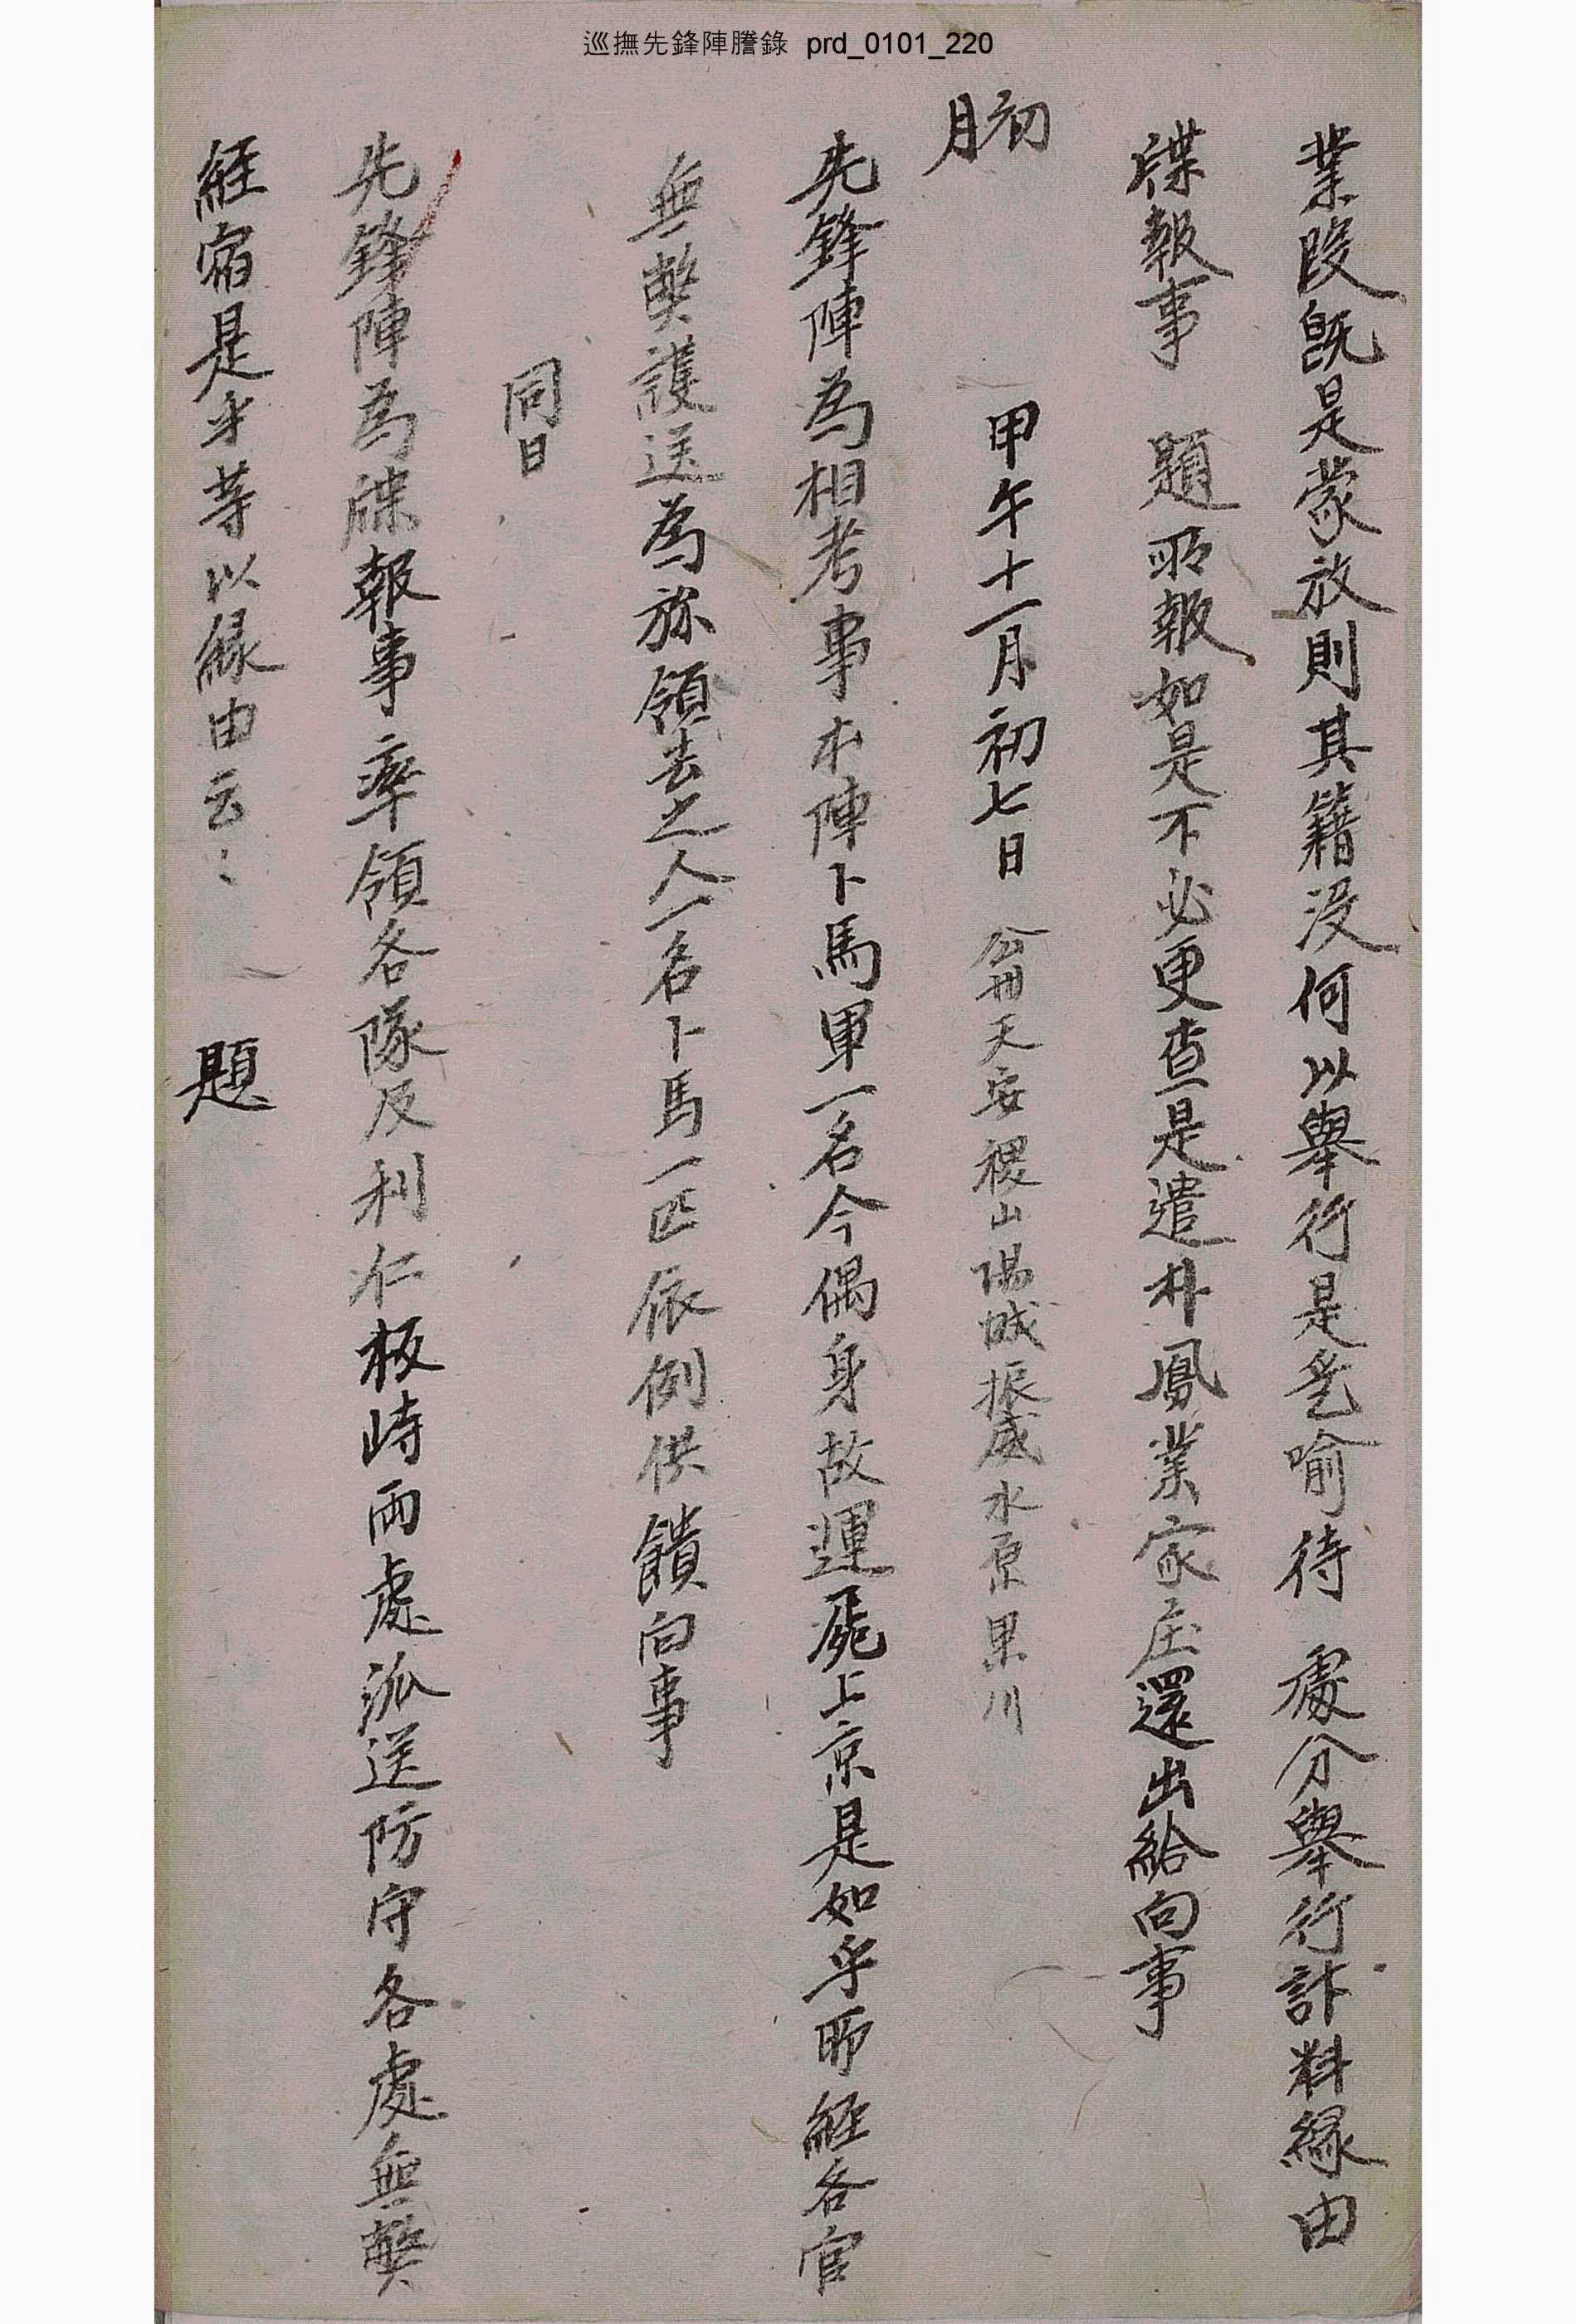 巡撫先鋒陣謄錄 prd_0101_220
業段旣是蒙放則其籍沒何以擧行是乭喩待 處分擧行計料緣由
牒報事 題 所報如是不必更查是遣朴鳳業家庄還出給向事
甲午十一月初七日 公州天安稷山陽城振威水原果川
先鋒陣爲相考事本陣卜馬軍一名今偶身故運屍上京是如乎所經各官
無弊護送爲旀領去之人一名卜馬一匹依例供饋向事
同日
先鋒陣爲牒報事率領各隊及利仁板峙兩處派送防守各處無弊
經宿是乎等以緣由云〻 題